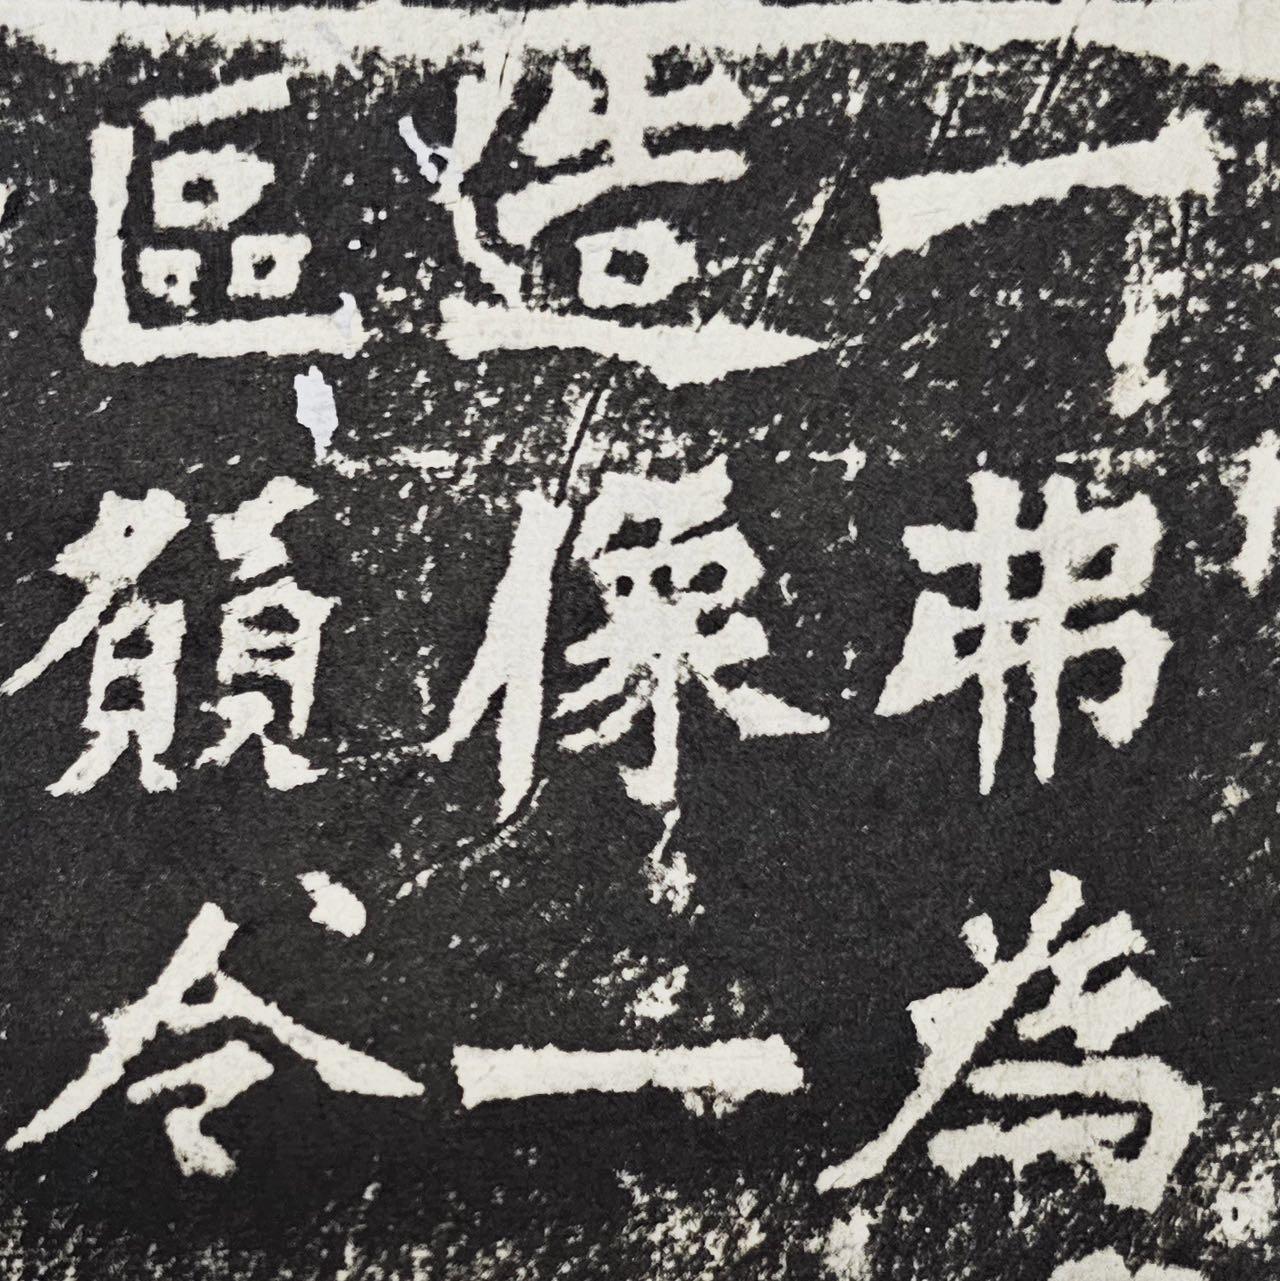 一弗為
造像一
區願令